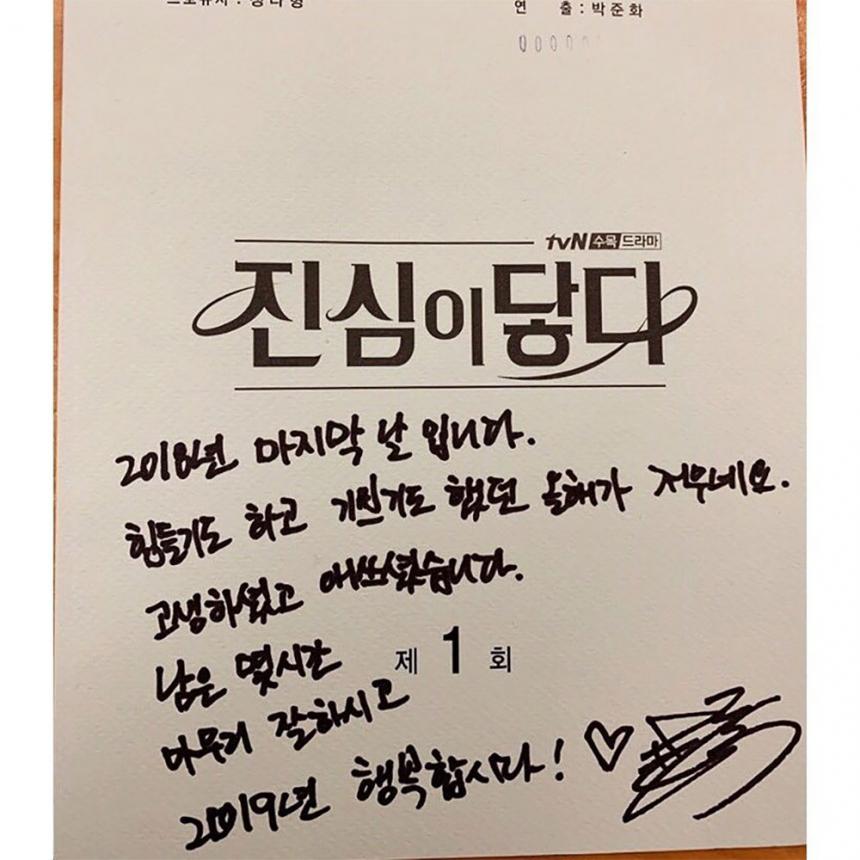 연 출 : 박준화
tvN 수목 드라마
진심이 닿다
2018년 마지막 날 입니다.
힘들기도 하고 기쁘기도 했던 올해가 저무네요.
고생하셨고 애쓰셨습니다.
남은 몇시간
제 1 회
마무리 잘하시고
2019년 행복합시다! ♡